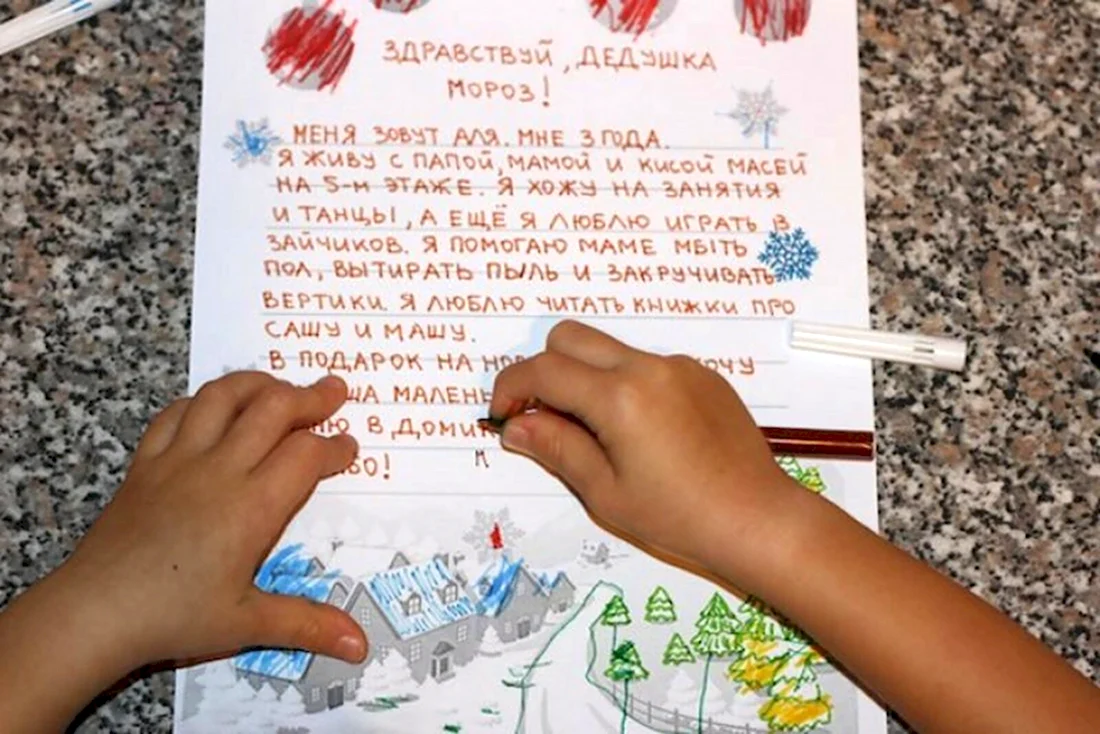 ЗДРАВСТВУЙ, ДЕДУШКА
МОРОЗ!
МЕНЯ ЗОВУТ АЛЯ. МНЕ 3 ГОДА.
Я ЖИВУ С ПАПОЙ, МАМОЙ И КИСОЙ МАСЕЙ
НА 5-М ЭТАЖЕ. Я ХОЖУ НА ЗАНЯТИЯ
И ТАНЦЫ, А ЕЩЁ Я ЛЮБЛЮ ИГРАТЬ В
ЗАЙЧИКОВ. Я ПОМОГАЮ МАМЕ МЫТЬ
ПОЛ, ВЫТИРАТЬ ПЫЛЬ И ЗАКРУЧИВАТЬ
ВЕРТИКИ. Я ЛЮБЛЮ ЧИТАТЬ КНИЖКИ ПРО
САШУ И МАШУ.
В ПОДАРОК НА
МАЛЕНЬ
В ДОМИК